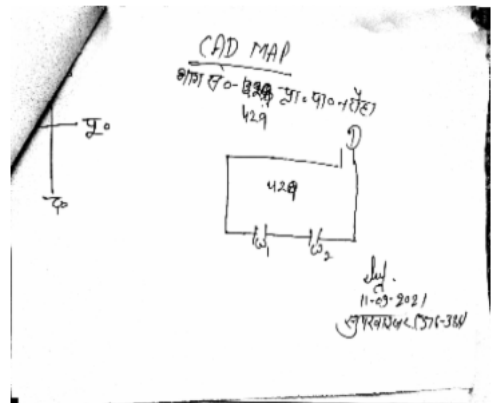 CAD MAP
भाग सं०- प्रा० पा० रौहा
429
पू०
द०
D
429
W1 W2
11-09-2021
सुपरवाइजर (376-384)